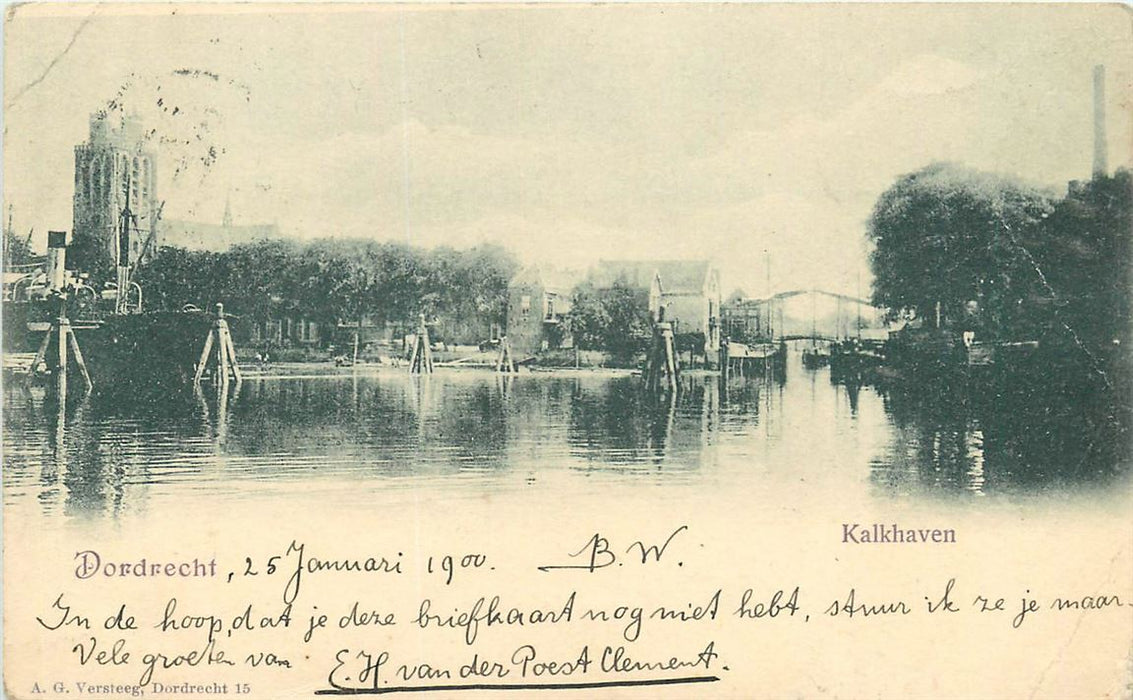 Kalkhaven
Dordrecht, 25 Januari 1900. B. W.
In de hoop, dat je deze briefkaart nog niet hebt, stuur ik ze je maar.
Vele groeten van E. H. van der Poest Clement.
A. G. Versteeg, Dordrecht 15